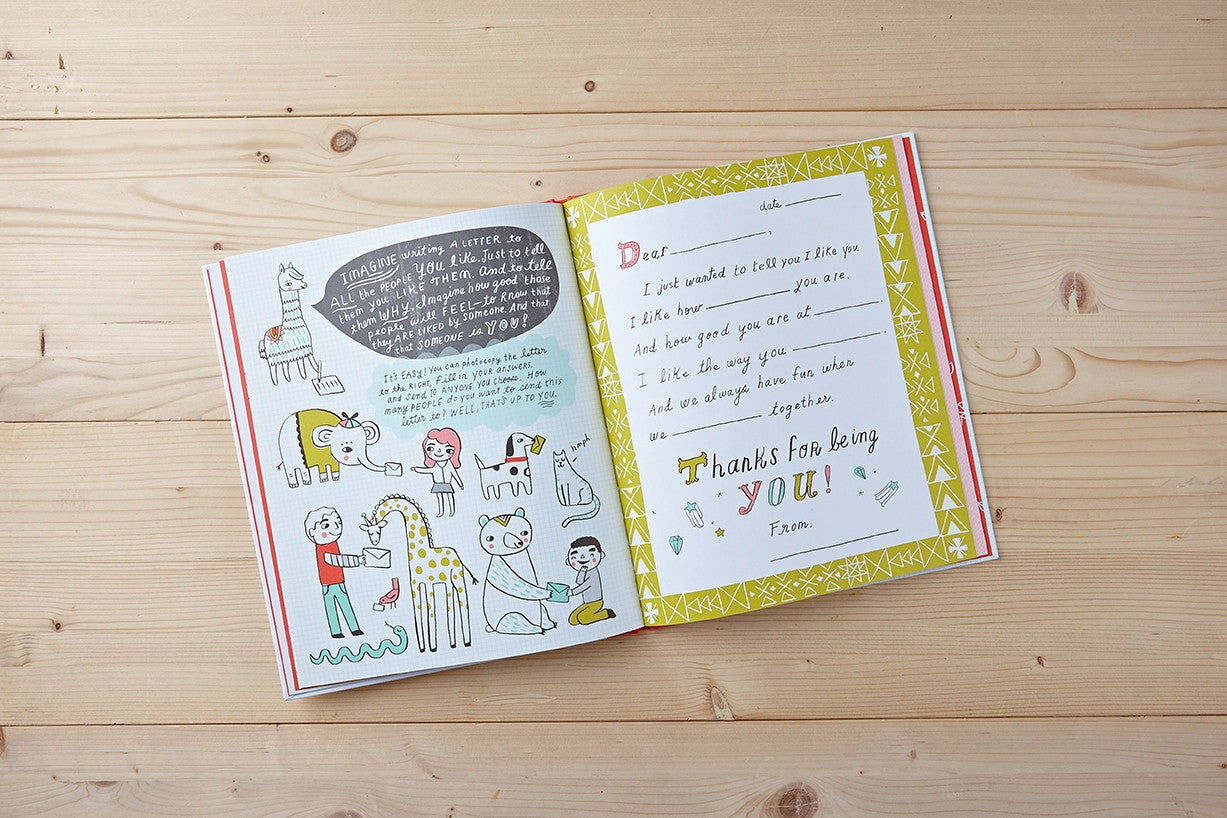 IMAGINE writing A LETTER to
ALL the PEOPLE YOU like. Just to tell
them you LIKE THEM. And to tell
them WHY. Imagine how good those
people will FEEL—to know that
they ARE LIKED by SOMEONE. And that
that SOMEONE is YOU!
IT'S EASY! YOU can photocopy the letter
to the RIGHT, fill in your answers,
and send TO ANYONE YOU choose. How
many PEOPLE do you want to send this
letter to? WELL, THAT'S UP TO YOU.
hmph
date
Dear ,
I just wanted to tell you I like you.
I like how you are.
And how good you are at
I like the way you
And we always have fun when
we together.
Thanks for being
YOU!
From,